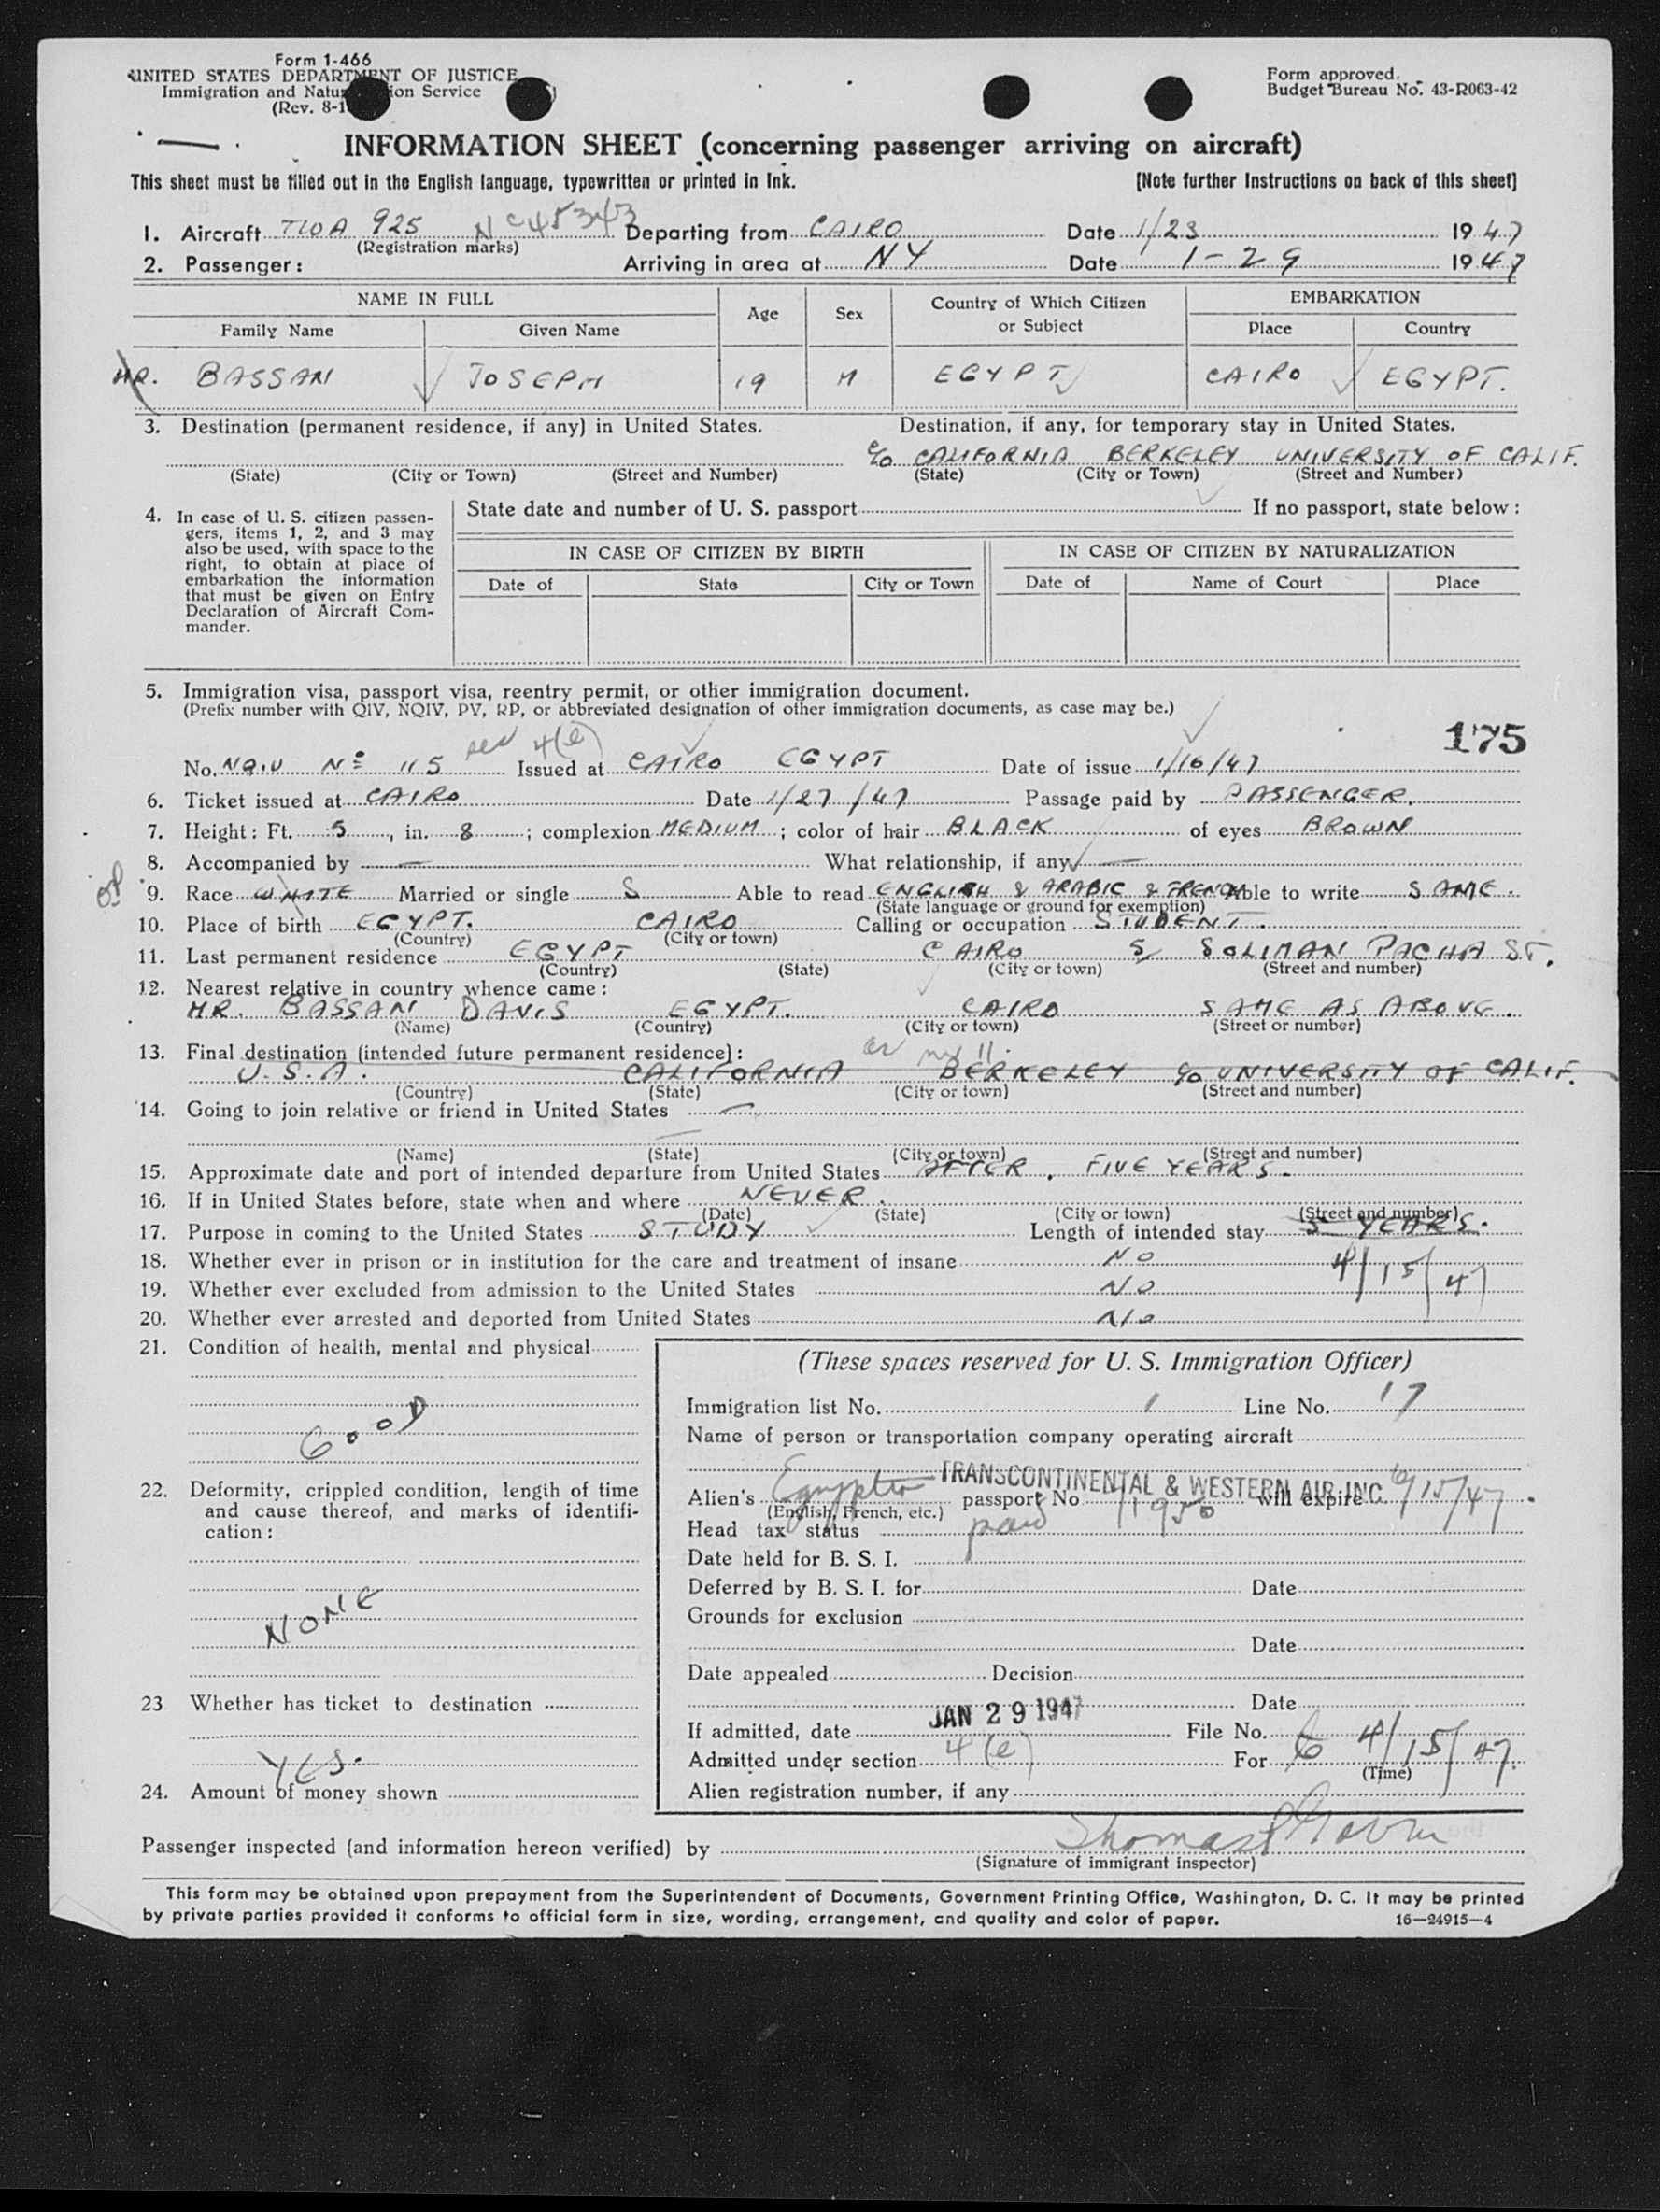 Form 1-466
UNITED STATES DEPARTMENT OF JUSTICE
Immigration and Natu ion Service
(Rev. 8-1
Form approved.
Budget Bureau No. 43-R063-42
INFORMATION SHEET (concerning passenger arriving on aircraft)
This sheet must be filled out in the English language, typewritten or printed in Ink. [Note further Instructions on back of this sheet]
1. Aircraft TWA 925 NC45343 Departing from CAIRO Date 1/23 1947
(Registration marks)
2. Passenger: Arriving in area at NY Date 1-29 1947
NAME IN FULL Age Sex Country of Which Citizen or Subject EMBARKATION
Family Name Given Name Place Country
MR. BASSAN JOSEPH 19 M EGYPT CAIRO EGYPT.
3. Destination (permanent residence, if any) in United States. Destination, if any, for temporary stay in United States.
c/o CALIFORNIA BERKELEY UNIVERSITY OF CALIF.
(State) (City or Town) (Street and Number) (State) (City or Town) (Street and Number)
4. In case of U. S. citizen passen-
gers, items 1, 2, and 3 may
also be used, with space to the
right, to obtain at place of
embarkation the information
that must be given on Entry
Declaration of Aircraft Com-
mander.
State date and number of U. S. passport If no passport, state below:
IN CASE OF CITIZEN BY BIRTH IN CASE OF CITIZEN BY NATURALIZATION
Date of State City or Town Date of Name of Court Place
5. Immigration visa, passport visa, reentry permit, or other immigration document.
(Prefix number with QIV, NQIV, PV, RP, or abbreviated designation of other immigration documents, as case may be.)
175
4(e)
No. NQIV No 115 Issued at CAIRO EGYPT Date of issue 1/16/47
6. Ticket issued at CAIRO Date 1/27/47 Passage paid by PASSENGER.
7. Height: Ft. 5, in. 8; complexion MEDIUM; color of hair BLACK of eyes BROWN
8. Accompanied by — What relationship, if any —
9. Race WHITE Married or single S Able to read ENGLISH & ARABIC & FRENCH Able to write SAME.
(State language or ground for exemption)
10. Place of birth EGYPT. CAIRO Calling or occupation STUDENT.
(Country) (City or town)
11. Last permanent residence EGYPT CAIRO 5, SOLIMAN PACHA ST.
(Country) (State) (City or town) (Street and number)
12. Nearest relative in country whence came:
MR. BASSAN DAVIS EGYPT. CAIRO SAME AS ABOVE.
(Name) (Country) (City or town) (Street or number)
13. Final destination (intended future permanent residence): as no 11.
U.S.A. CALIFORNIA BERKELEY c/o UNIVERSITY OF CALIF.
(Country) (State) (City or town) (Street and number)
14. Going to join relative or friend in United States —
(Name) (State) (City or town) (Street and number)
15. Approximate date and port of intended departure from United States AFTER. FIVE YEARS.
16. If in United States before, state when and where NEVER.
(Date) (State) (City or town) (Street and number)
17. Purpose in coming to the United States STUDY Length of intended stay 5 YEARS.
18. Whether ever in prison or in institution for the care and treatment of insane NO 4/15/47
19. Whether ever excluded from admission to the United States NO
20. Whether ever arrested and deported from United States NO
21. Condition of health, mental and physical
GOOD
22. Deformity, crippled condition, length of time
and cause thereof, and marks of identifi-
cation:
NONE
23 Whether has ticket to destination
YES.
24. Amount of money shown
(These spaces reserved for U. S. Immigration Officer)
Immigration list No. 1 Line No. 17
Name of person or transportation company operating aircraft
TRANSCONTINENTAL & WESTERN AIR INC.
Alien's Egyptn passport No 11950 will expire 6/15/47.
(English, French, etc.)
Head tax status paid
Date held for B. S. I.
Deferred by B. S. I. for Date
Grounds for exclusion
Date
Date appealed Decision
Date
If admitted, date JAN 29 1947 File No.
Admitted under section 4(e) For to 4/15/47.
(Time)
Alien registration number, if any
Passenger inspected (and information hereon verified) by Thomas
(Signature of immigrant inspector)
This form may be obtained upon prepayment from the Superintendent of Documents, Government Printing Office, Washington, D. C. It may be printed
by private parties provided it conforms to official form in size, wording, arrangement, and quality and color of paper. 16—24915-4